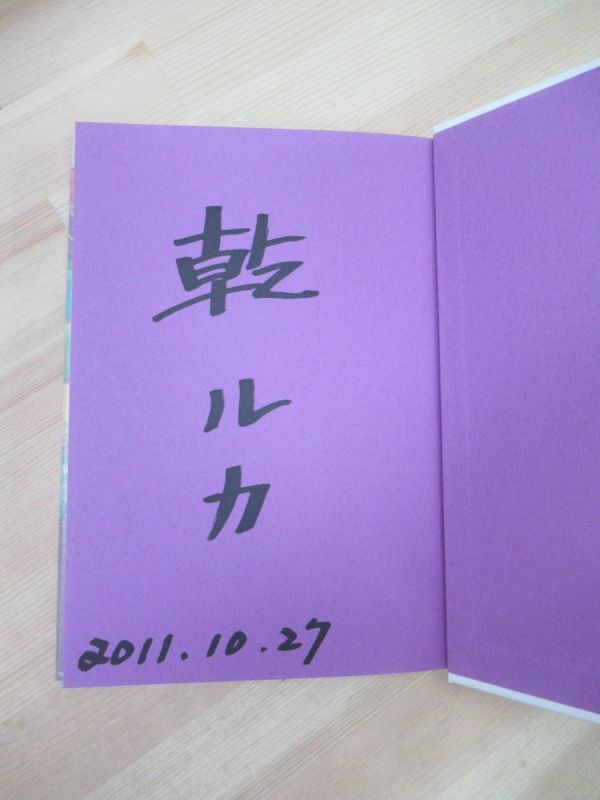 乾ルカ
2011.10.27